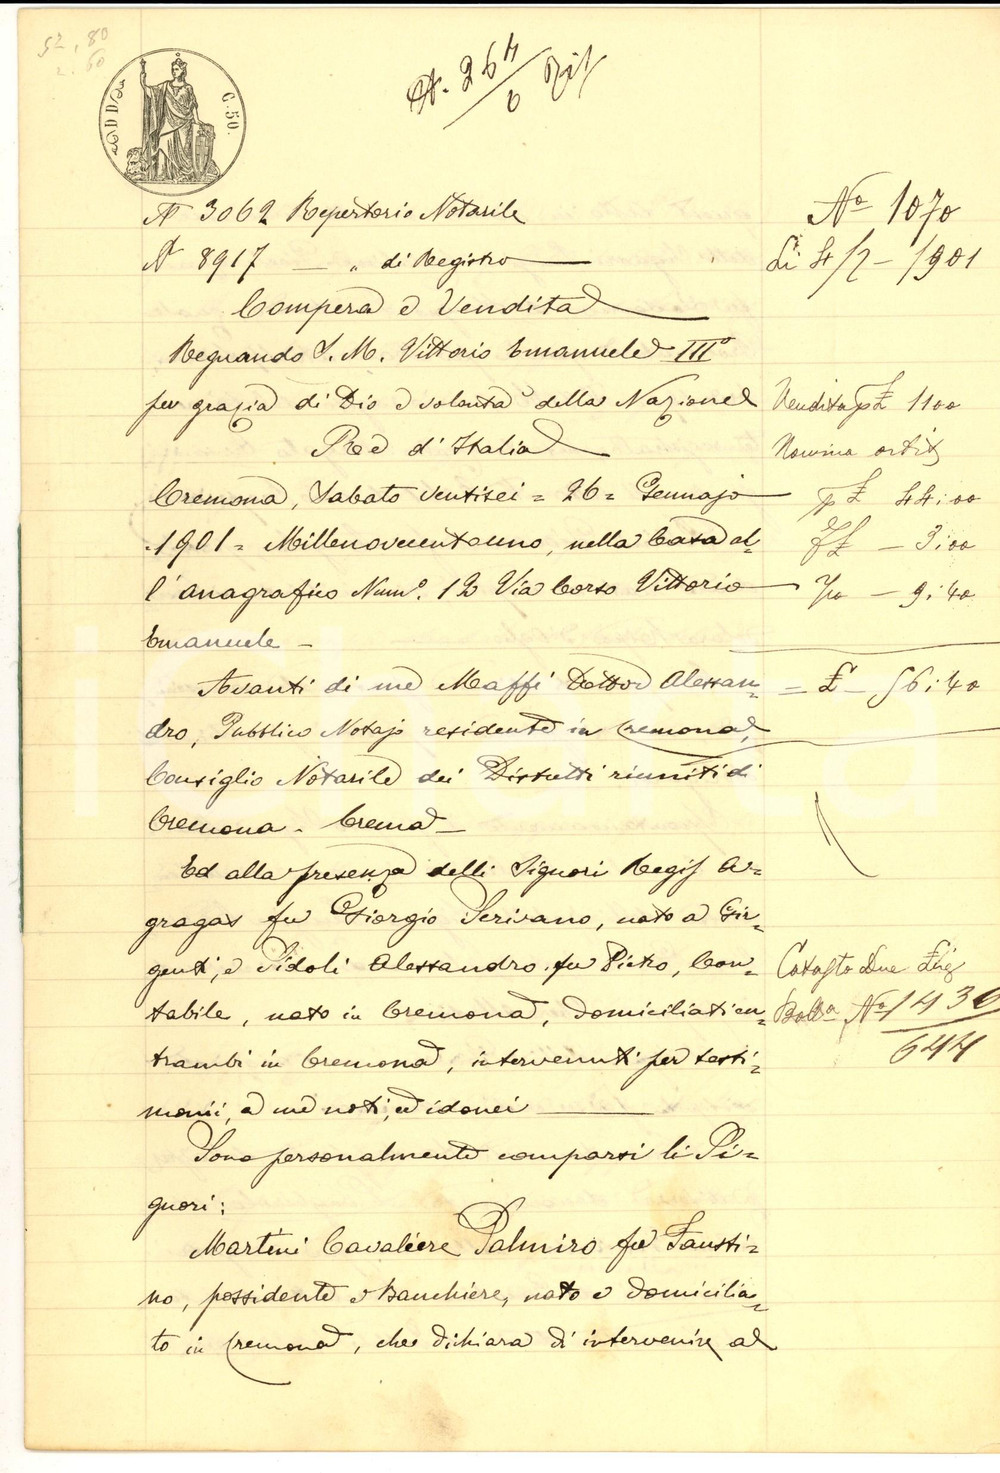 52,80
2.60
C. 50.
N. 264
6
N° 3062 Repertorio Notarile
N° 8917 — " di Registro
Compera e Vendita
Regnando S. M. Vittorio Emanuele III°
per grazia di Dio e volontà della Nazione
Re d'Italia
Cremona, Sabato ventisei = 26 = Gennajo
1901 = Millenovecentouno, nella Casa al-
l'anagrafico Num°. 12 Via Corso Vittorio
Emanuele –
Avanti di me Maffi Dottor Alessan-
dro, Pubblico Notajo residente in Cremona,
Consiglio Notarile dei Distretti riuniti di
Cremona - Crema –
Ed alla presenza delli Signori Regis A-
gragas fu Giorgio Scrivano, nato a Gir-
genti, e Sidoli Alessandro fu Pietro, Con-
tabile, nato in Cremona, domiciliati en-
trambi in Cremona, intervenuti per testi-
monii, a me noti, ed idonei
Sono personalmente comparsi li Si-
gnori:
Martini Cavaliere Palmiro fu Fausti-
no, possidente e Banchiere, nato e domicilia-
to in Cremona, che dichiara di intervenire al
N° 1070
Li 4/2 – /901
Vendita p £ 1100
p £ 44:00
£ – 3:00
7/10 – 9:40
= £ – 56:40
Catasto Due
Bolla N° 1436
644